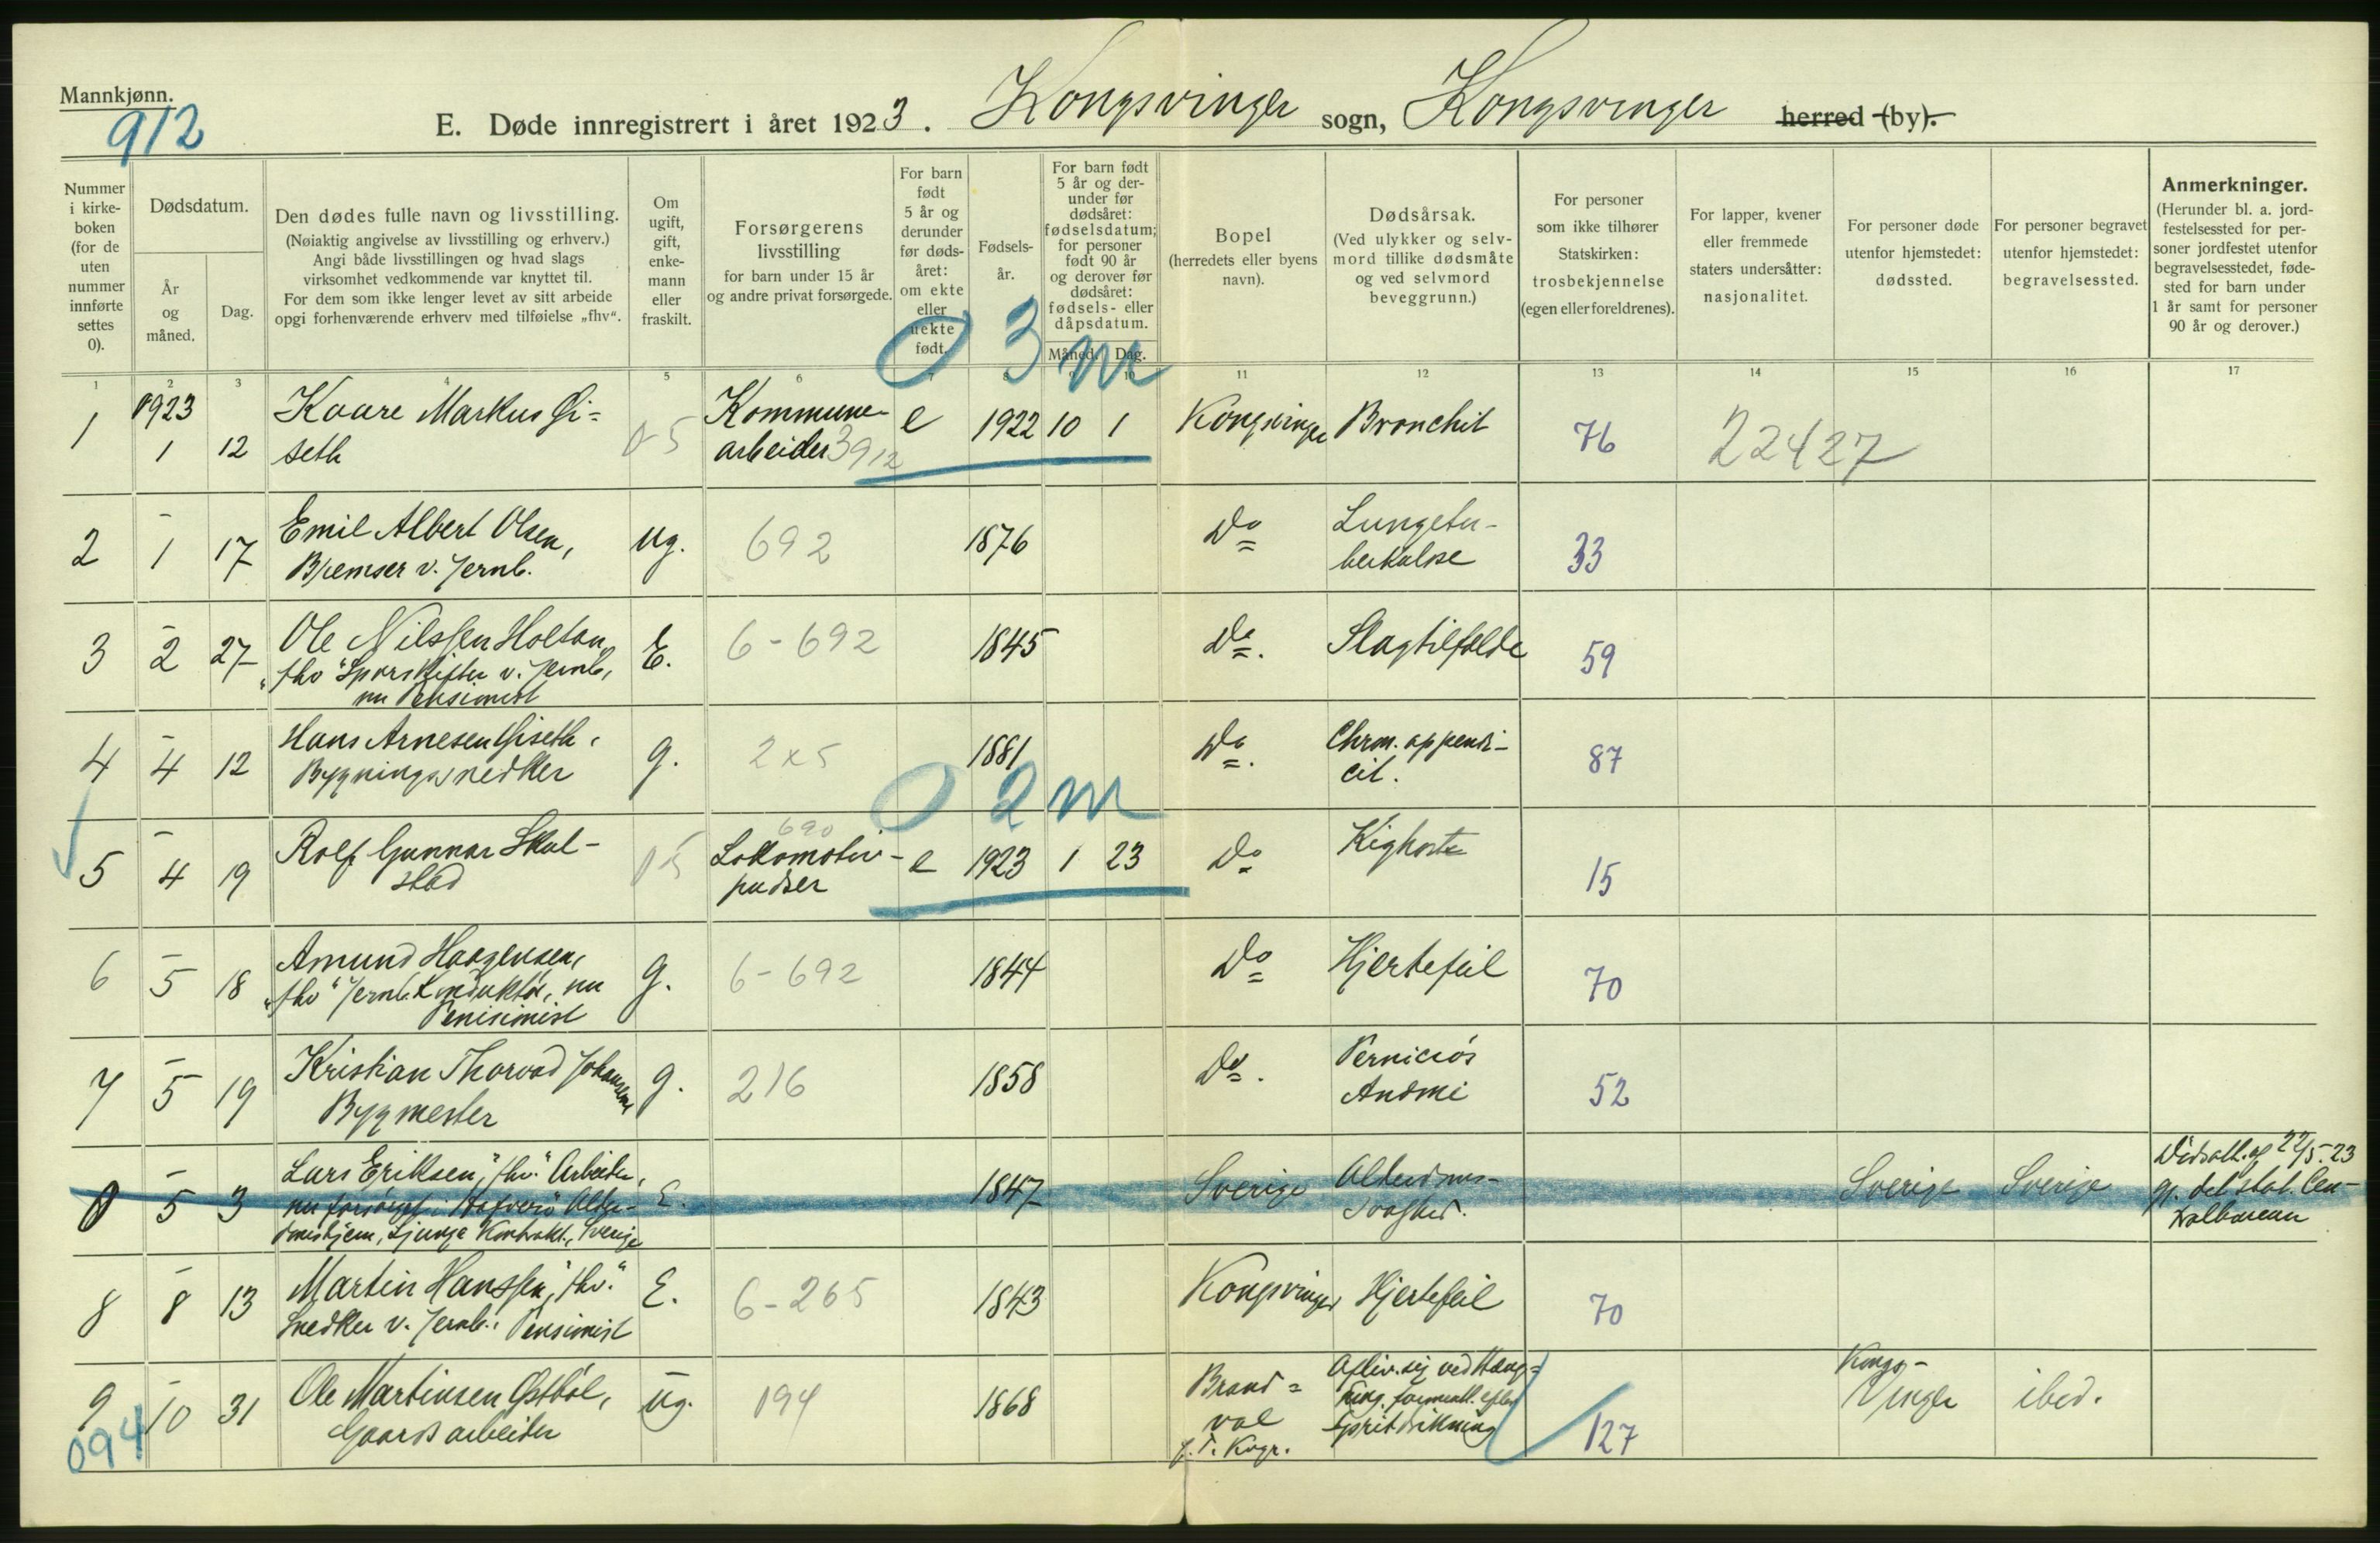 Mannkjønn.
912
E. Døde innregistrert i året 1923. Kongsvinger sogn, Kongsvinger herred (by).
Nummer i kirkeboken (for de uten nummer innførte settes 0).
Dødsdatum.
År og måned.
Dag.
Den dødes fulle navn og livsstilling.
(Nøiaktig angivelse av livsstilling og erhverv.)
Angi både livsstillingen og hvad slags
virksomhet vedkommende var knyttet til.
For dem som ikke lenger levet av sitt arbeide
opgi forhenværende erhverv med tilføielse „fhv“.
Om ugift, gift, enkemann eller fraskilt.
Forsørgerens
livsstilling
for barn under 15 år
og andre privat forsørgede.
For barn født 5 år og derunder før dødsåret: om ekte eller uekte født.
Fødselsår.
For barn født 5 år og derunder før dødsåret: fødselsdatum; for personer født 90 år og derover før dødsåret: fødsels- eller dåpsdatum.
Måned. Dag.
Bopel
(herredets eller byens
navn).
Dødsårsak.
(Ved ulykker og selv-
mord tillike dødsmåte
og ved selvmord
beveggrunn.)
For personer
som ikke tilhører
Statskirken:
trosbekjennelse
(egen eller foreldrenes).
For lapper, kvener
eller fremmede
staters undersåtter:
nasjonalitet.
For personer døde
utenfor hjemstedet:
dødssted.
For personer begravet
utenfor hjemstedet:
begravelsessted.
Anmerkninger.
(Herunder bl. a. jord-
festelsessted for per-
soner jordfestet utenfor
begravelsesstedet, føde-
sted for barn under
1 år samt for personer
90 år og derover.)
0 3 m
1 2 3 4 5 6 7 8 9 10 11 12 13 14 15 16 17
1 1923 1 12 Kaare Markus Gi=
seth
05 Kommune-
arbeider 3912
e 1922 10 1 Kongsvinger Bronchit 76 22427
2 – 1 17 Emil Albert Olsen,
Bremser v. Jernb.
ug. 692 1876 Do Lungetu-
berkulose
33
3 – 2 27 Ole Nilssen Holtan,
"fhv" Sporskifter v. Jernb.,
nu Pensionist
E. 6-692 1845 Do. Slagtilfælde 59
4 – 4 12 Hans Arnesen Giseth,
Bygningssnedker
g. 2x5 1881 Do. Chron. appendi-
cit.
87
0 2 m
5 – 4 19 Rolf Gunnar Skul-
stad
05 690
Lokomotiv-
pudser
e 1923 1 23 Do Kighoste 15
6 – 5 18 Amund Haagensen,
"fhv" Jernb. Konduktør, nu
Pensionist
g. 6-692 1844 Do Hjertefeil 70
7 – 5 19 Kristian Thorvad Johansen
Bygmester
g. 216 1858 Do. Perniciøs
Anæmi
52
0 – 5 3 Lars Eriksen, "fhv." Arbeider,
nu forsørget i Alder-
domshjem, Ljunga Kontrakt, Sverige
E. 1847 Sverige Alderdoms-
svaghed.
Sverige Sverige Dødsatt. af 22/5.23
gj. det stat. Cen-
tralbureau
8 – 8 13 Martin Hanssen, "fhv."
Snedker v. Jernb., Pensionist
E. 6-265 1843 Kongsvinger Hjertefeil 70
9 – 10 31 Ole Martinsen Østbøl,
Gaardsarbeider
ug. 194 1868 Brand=
val
p. T. Kvgr.
Afliv. sig ved Hæng=
ning, formentl. efter
Spritdrikning
127 Kongs-
vinger
ibid.
094